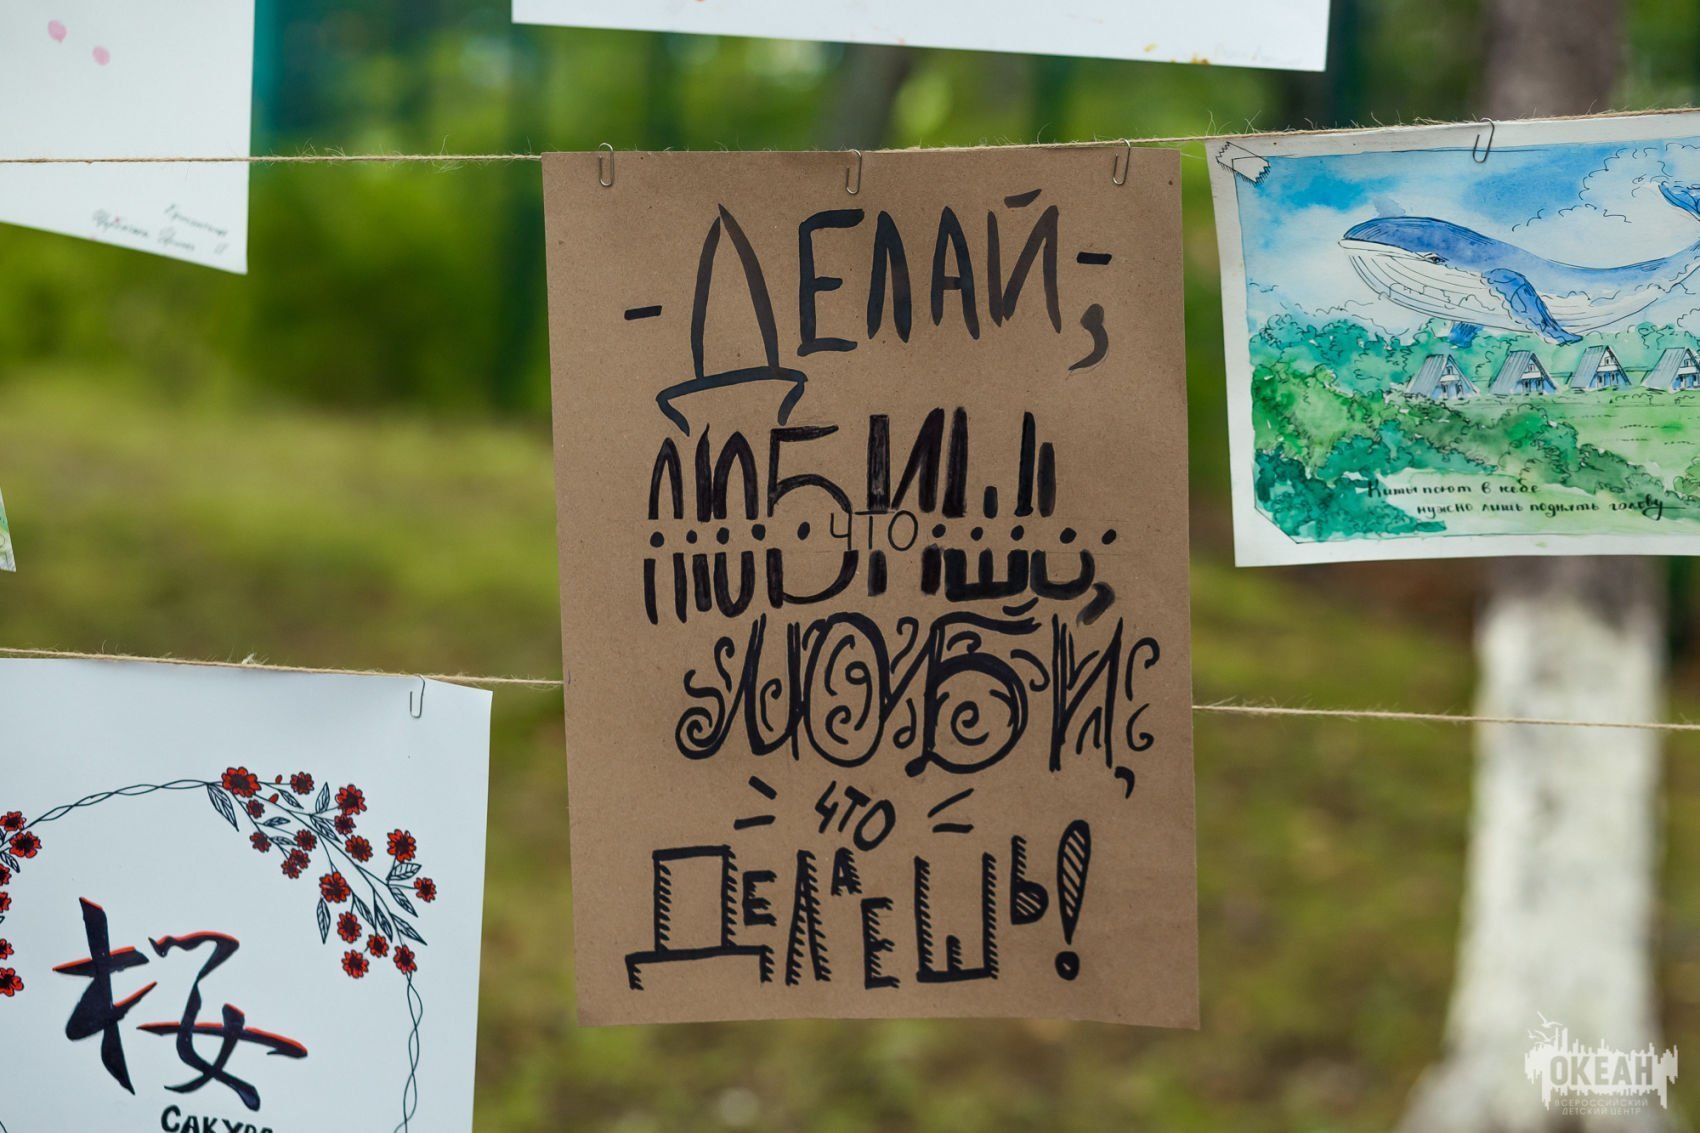 - ДЕЛАЙ, -
ЧТО
ЛЮБИШЬ,
ЛЮБИ,
ЧТО
ДЕЛАЕШЬ!
Киты поют в небе
нужно лишь поднять голову
桜
САКУРА
ОКЕАН
ВСЕРОССИЙСКИЙ
ДЕТСКИЙ ЦЕНТР